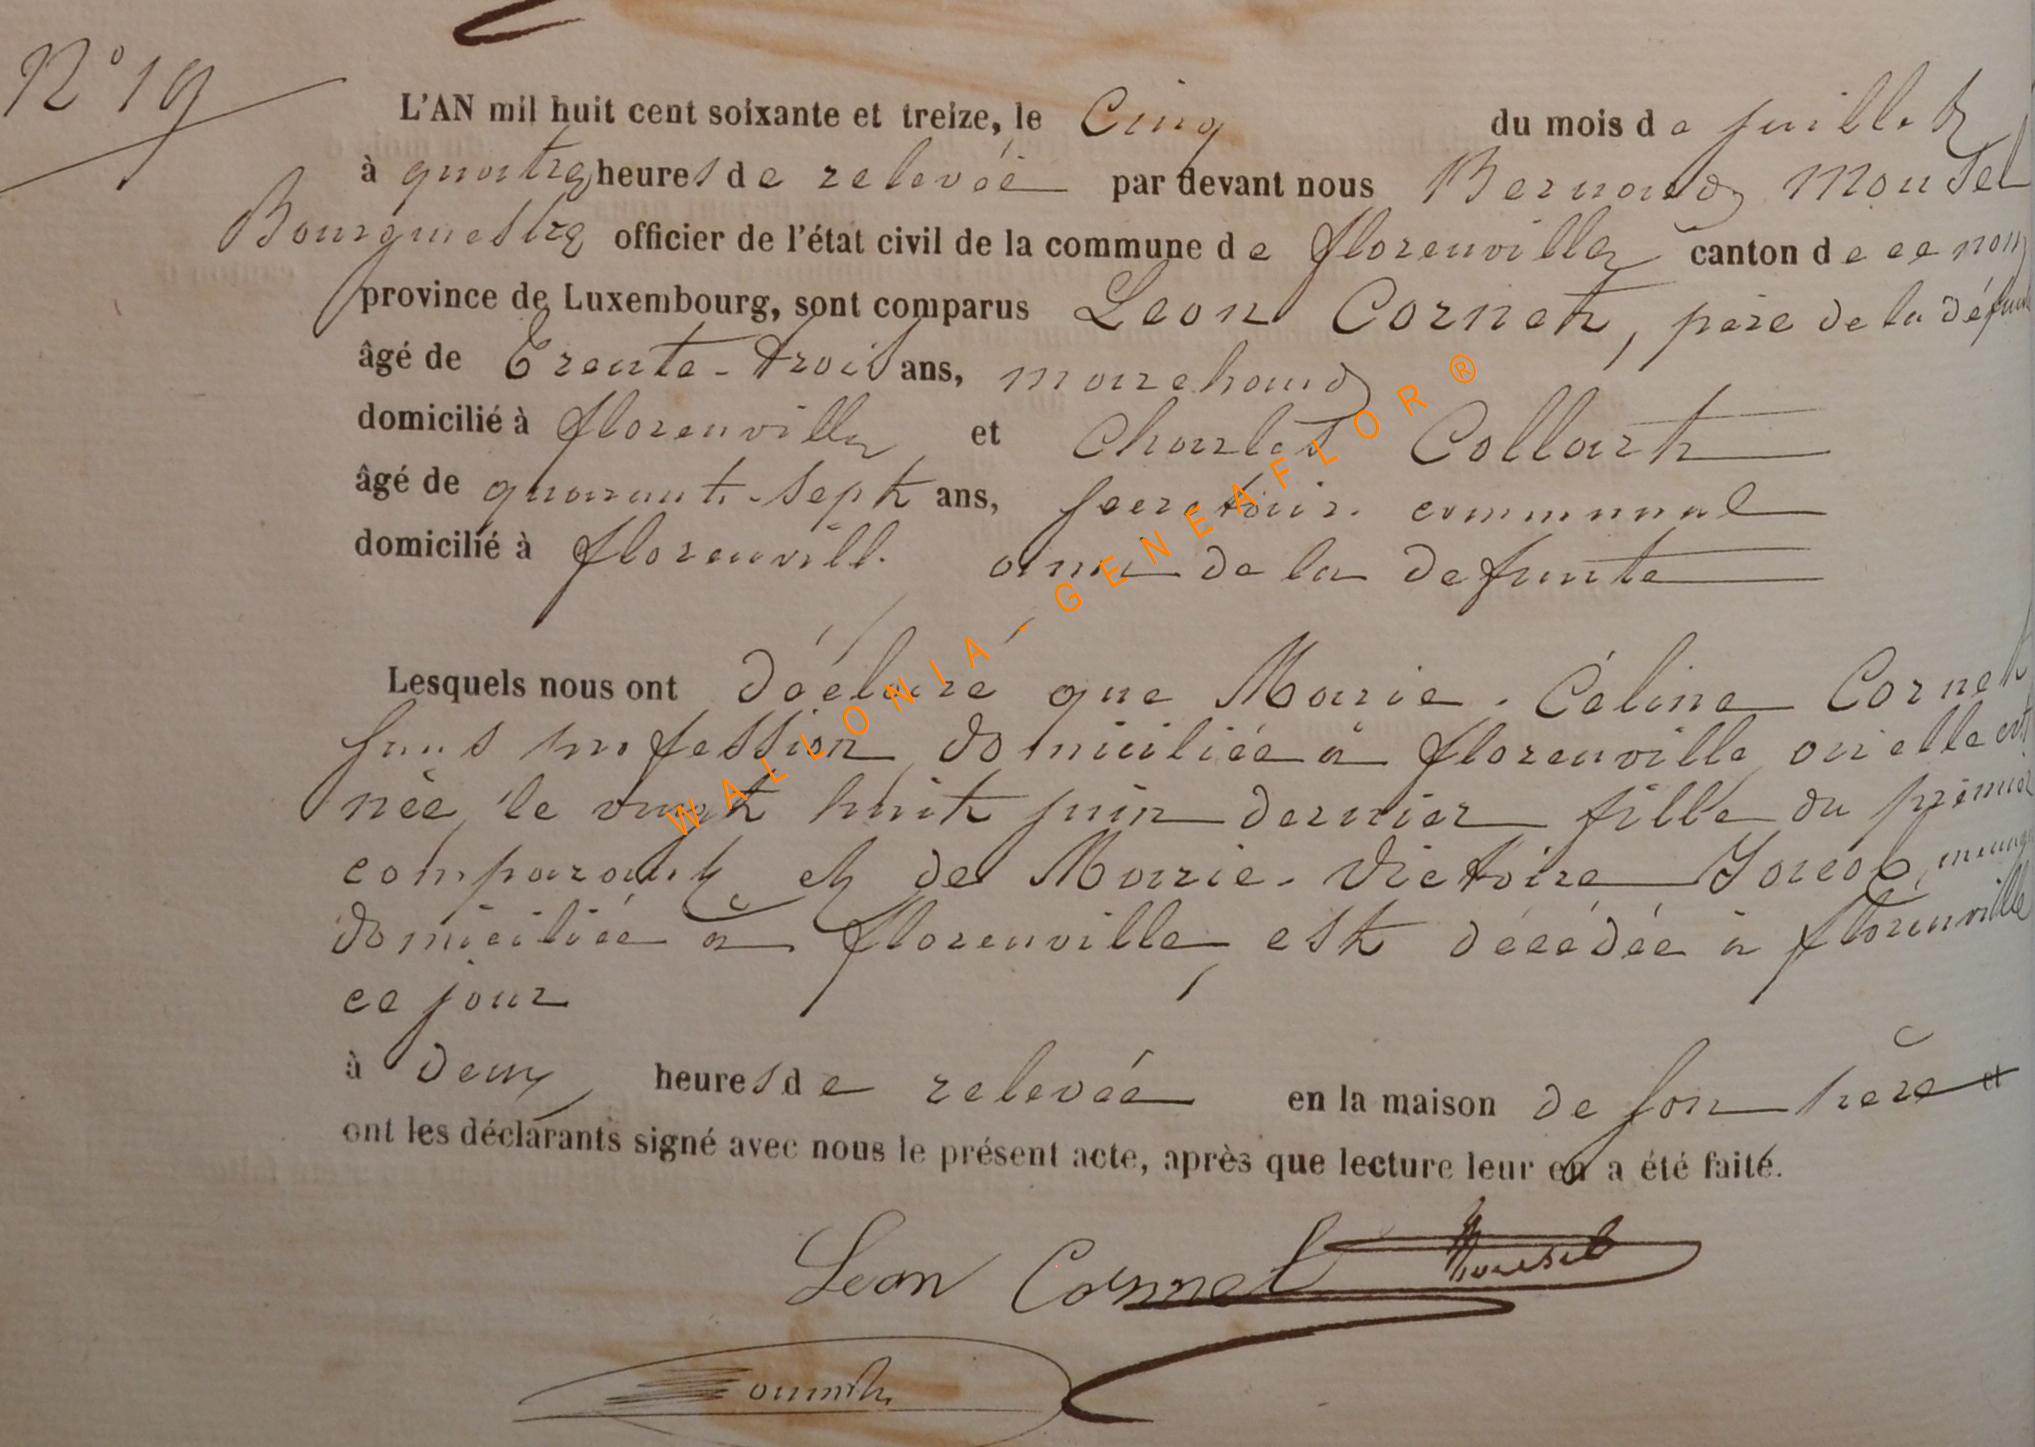 N° 19
L'AN mil huit cent soixante et treize, le Cinq du mois de juillet
à quatre heures de relevée par devant nous Bernard Mousel
Bourgmestre officier de l'état civil de la commune de florenville canton de ce nom
province de Luxembourg, sont comparus Leon Cornet, père de la défunte
âgé de Trente-trois ans, marchand
domicilié à florenville et Charles Collart
âgé de quarante-sept ans, secretaire communal
domicilié à florenville ami de la defunte
Lesquels nous ont déclaré que Marie-Céline Cornet
sans profession domiciliée à florenville où elle est
née le vingt huit juin dernier fille du premier
comparant et de Marie-Victoire
domiciliée à florenville, est décédée à florenville
ce jour
à deux heures de relevée en la maison de son père et
ont les déclarants signé avec nous le présent acte, après que lecture leur en a été faite.
Leon Cornnet Mousel
WALLONIA-GENEAFLOR®